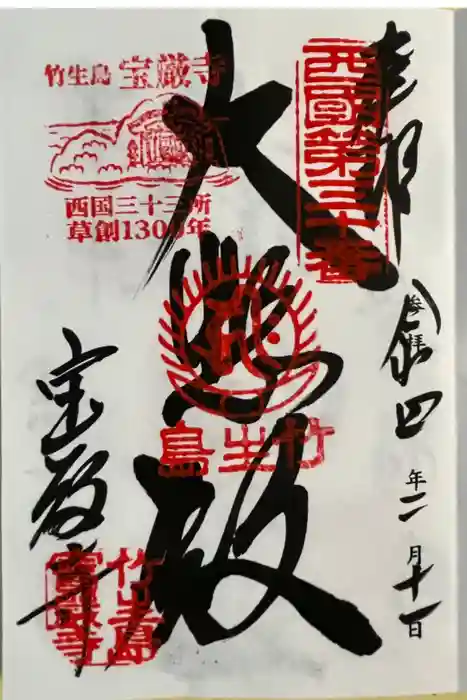 奉拝
西國第三十番
参拝
令和四年二月十一日
大悲殿
竹生島 宝厳寺
西国三十三所
草創1300年
竹生島
宝厳寺
竹生島
寳厳寺